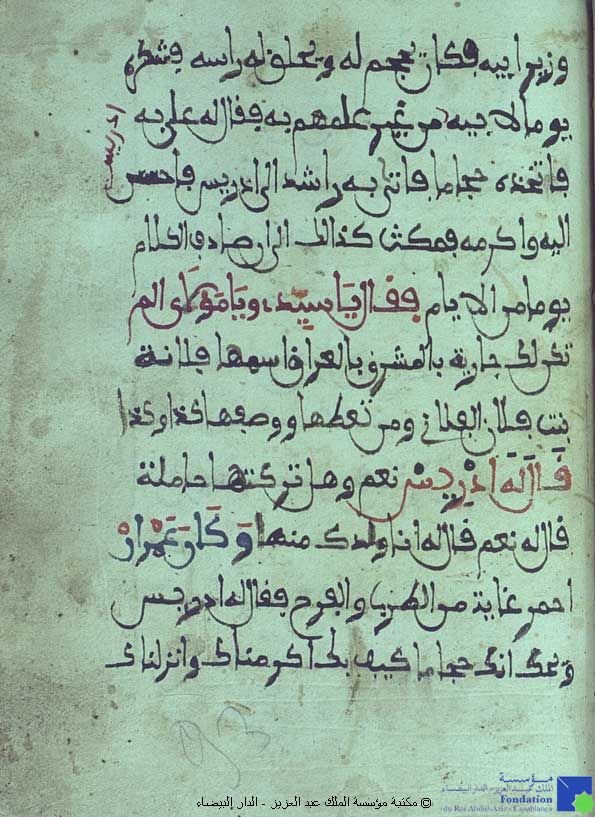 وزير ابيه فكان يحجم له ويحلق له راسه فشكره
يوما لابيه من غير علمهم به فقال له علي به
ادريس
فاتخذه حجاما فاتى به راشد الى ادريس فاحسن
اليه واكرمه فمكث كذالك الى ان صادف الكلام
يوما من الايام فقال يا سيدي ويا مولاي الم
تكن لك جارية بالمشرق بالعراق اسمها فلانة
بنت فلان الفلاني ومن نعتها ووصفها كذا وكذا
قال له ادريس نعم وهل تركتها حاملة
قال له نعم قال له انا ولدك منها وكان
احمر غاية من الطرب والفرح فقال له ادريس
ويحك انك حجاما كيف بك اكرمناك وانزلناك
93
مؤسسة
الملك عبد العزيز - الدار البيضاء
Fondation
du Roi Abdul-Aziz - Casablanca
© مكتبة مؤسسة الملك عبد العزيز - الدار البيضاء